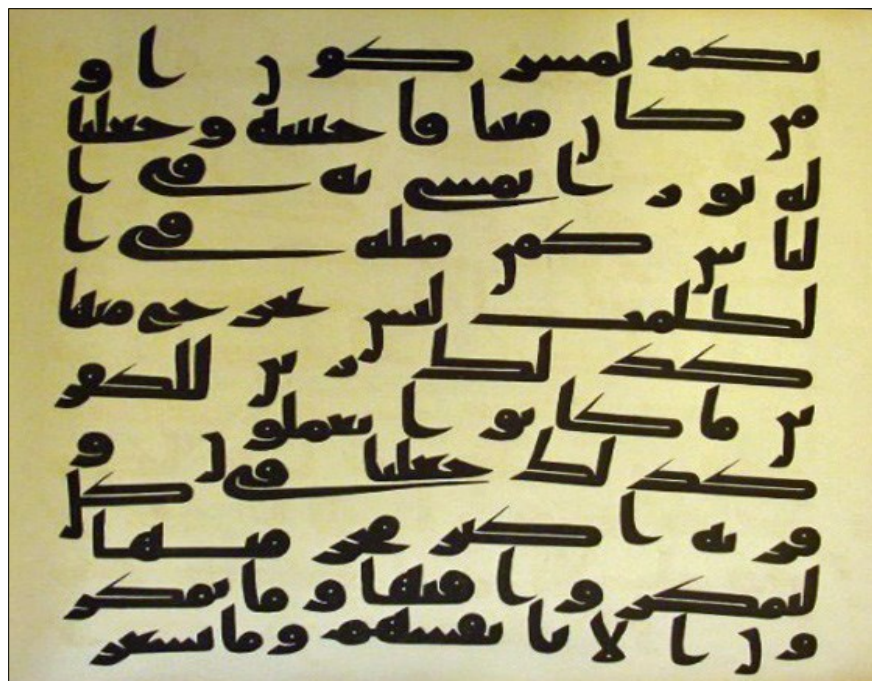 نكم لمشركون او
من كان ميتا فاحيينه وجعلنا
له نورا يمشي به في ا
لناس كمن مثله في ا
لظلمت ليس بخرج منها
كذلك زين للكفر
ين ما كانوا يعملون و
كذلك جعلنا في كل
قرية اكبر مجرميها
ليمكروا فيها وما يمكر
ون الا بانفسهم وما يشعر